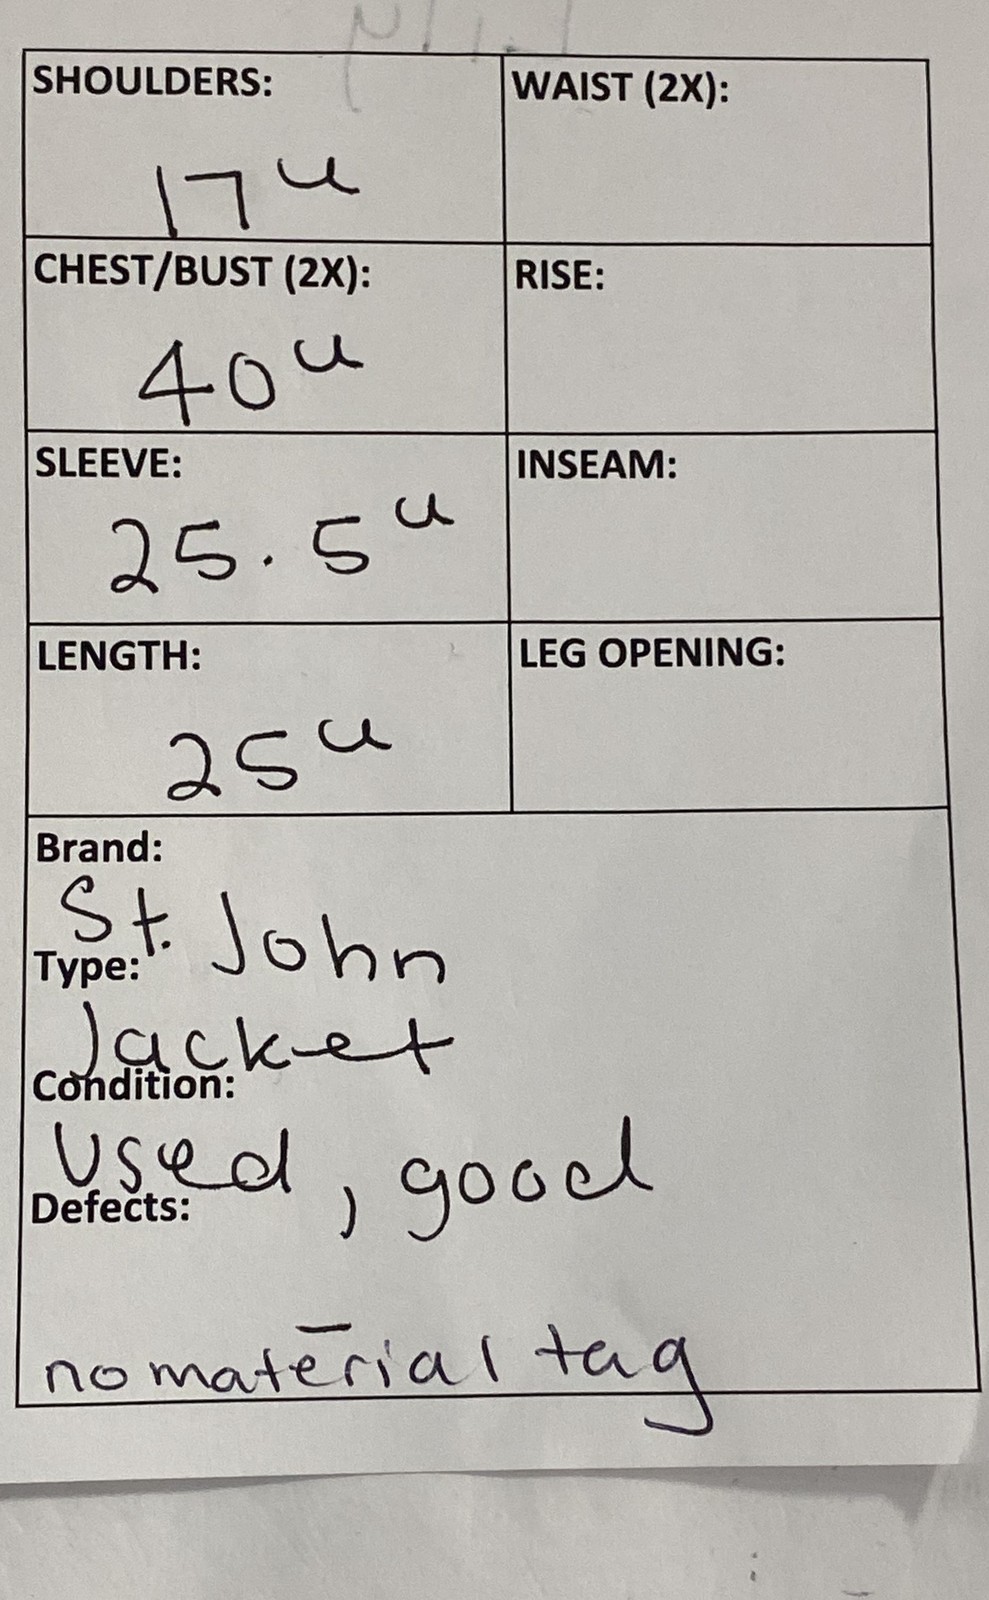 SHOULDERS:
17"
WAIST (2X):
CHEST/BUST (2X):
40"
RISE:
SLEEVE:
25.5"
INSEAM:
LENGTH:
25"
LEG OPENING:
Brand:
St. John
Type:
Jacket
Condition:
Used, good
Defects:
—
no material tag